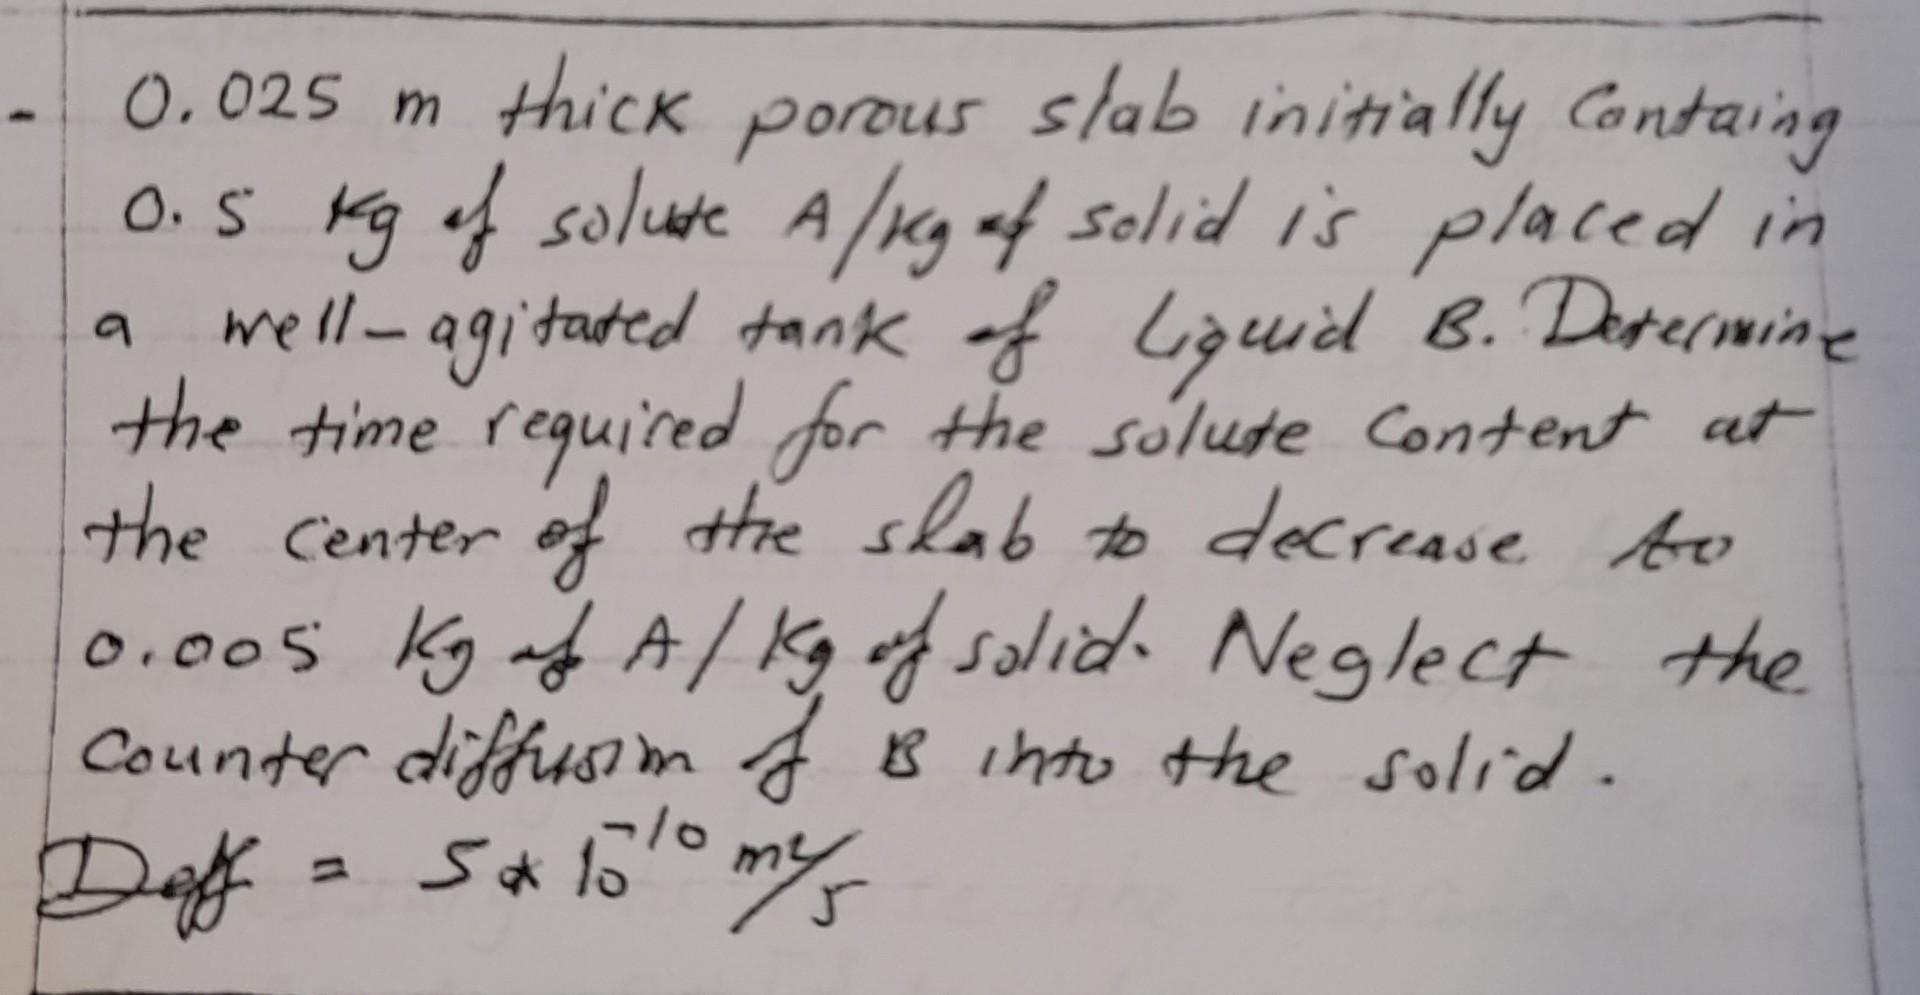 - 0.025 m thick porous slab initially Containg
0.5 Kg of solute A/Kg of solid is placed in
a well-agitated tank of Liquid B. Determine
the time required for the solute Content at
the Center of the slab to decrease to
0.005 Kg of A/Kg of solid. Neglect the
Counter diffusion of B into the solid.
Deff = 5 * 10⁻¹⁰ m²/s